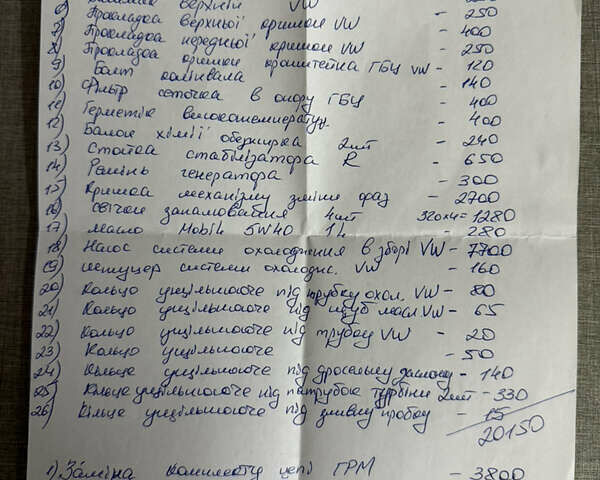 верхній VW
6) Прокладка верхньої кришки VW - 250
7) Прокладка передньої кришки VW - 400
8) Прокладка кришки кронштейна ГБЦ VW - 250
9) Болт колінвала - 120
10) Фільтр сеточка в опору ГБЦ - 140
11) Герметік високотемператур. - 400
12) Балон хімії обезжирка 2шт - 400
13) Стойка стабілізатора R - 240
14) Ремінь генератора - 650
15) Кришка механізму зміни фаз - 300
16) свічки запалювання 4шт 320х4=1280
17) масло Mobil 5W40 1л - 280
18) Насос системи охолодження в зборі VW - 7700
19) штуцер системи охолодж. VW - 160
20) Кольцо ущільнююче під трубку охол. VW - 80
21) Кольцо ущільнююче під щуп масл. VW - 65
22) Кольцо ущільнююче під трубку VW - 20
23) Кольцо ущільнююче - 50
24) Кільце ущільнююче під дросельну заслонку - 140
25) Кільце ущільнююче під патрубок турбіни 2шт - 330
26) Кільце ущільнююче під зливну пробку - 15
20150
1) Заміна комплекту цепі ГРМ - 3800